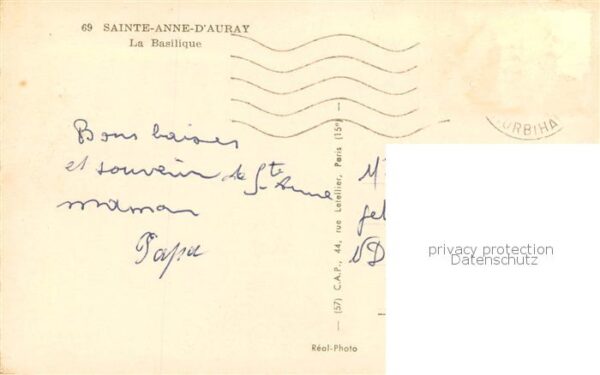 69 SAINTE-ANNE-D'AURAY
La Basilique
ORBIHA
Bons baisers
et souvenir de Ste Anne
maman
Papa
(57) C.A.P., 44, rue Letellier, Paris (15e)
Réal-Photo
privacy protection
Datenschutz